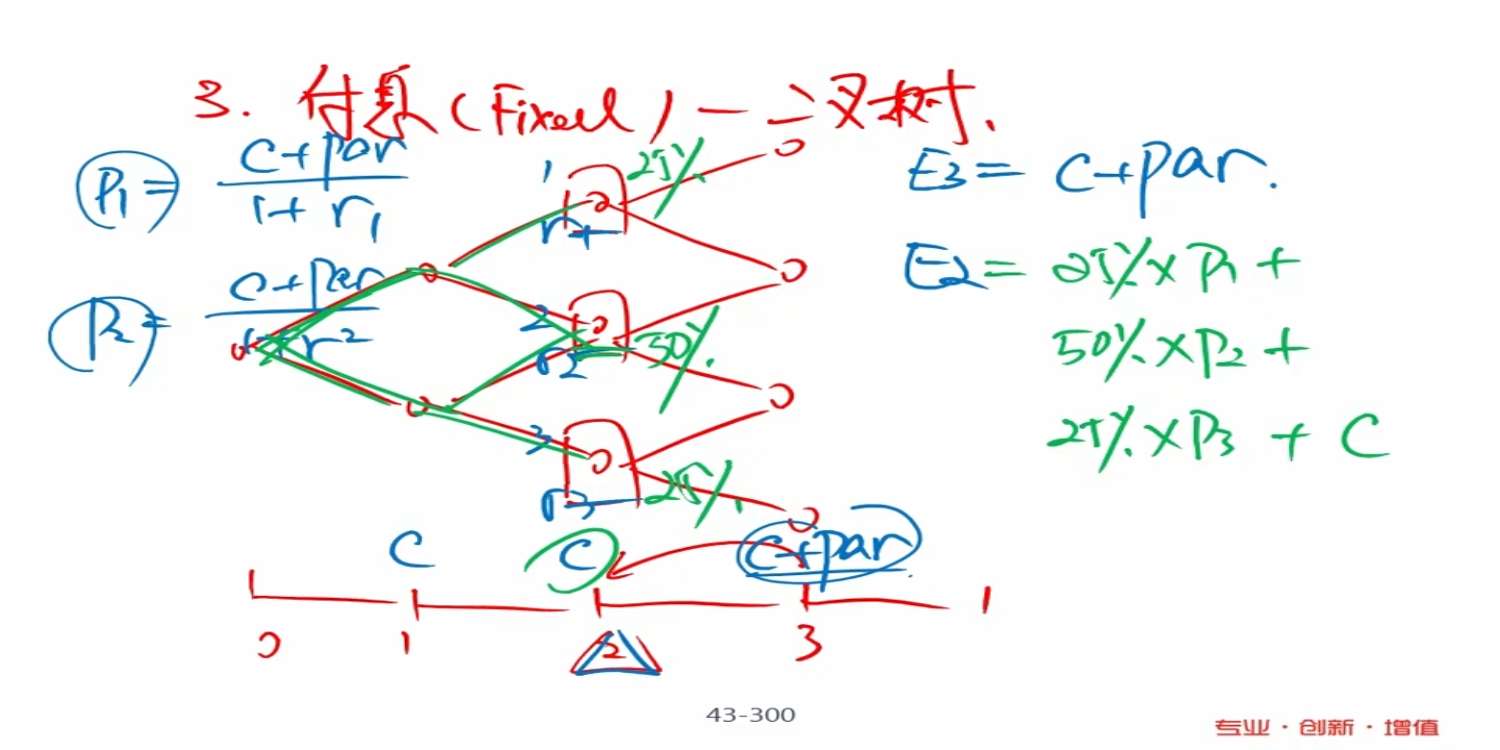 3. 付息(Fixed)—二叉树.
P1 = (C+par)/(1+r1)
P2 = (C+par)/(1+r2)
1
r1
25%
2
r2
50%
3
r3
25%
E3 = C+par.
E2 = 25%×P1 +
50%×P2 +
25%×P3 + C
C C C+par
0 1 2 3
43-300
专业·创新·增值